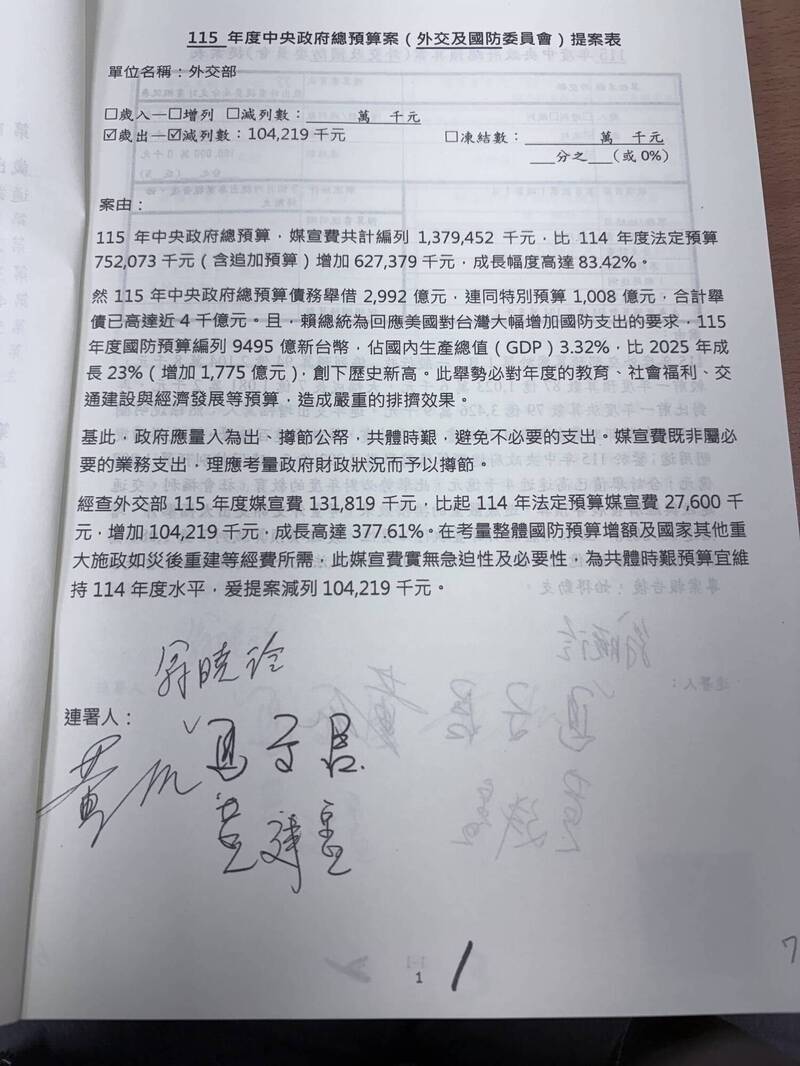 115 年度中央政府總預算案（外交及國防委員會）提案表
單位名稱：外交部
□歲入—□增列 □減列數：＿＿＿萬　千元
☑歲出—☑減列數：104,219 千元　□凍結數：＿＿＿萬　千元
＿＿分之＿＿(或 0%)
案由：
115 年中央政府總預算，媒宣費共計編列 1,379,452 千元，比 114 年度法定預算
752,073 千元（含追加預算）增加 627,379 千元，成長幅度高達 83.42%。
然 115 年中央政府總預算債務舉借 2,992 億元，連同特別預算 1,008 億元，合計舉
債已高達近 4 千億元。且，賴總統為回應美國對台灣大幅增加國防支出的要求，115
年度國防預算編列 9495 億新台幣，佔國內生產總值（GDP）3.32%，比 2025 年成
長 23%（增加 1,775 億元），創下歷史新高。此舉勢必對年度的教育、社會福利、交
通建設與經濟發展等預算，造成嚴重的排擠效果。
基此，政府應量入為出、撙節公帑，共體時艱，避免不必要的支出。媒宣費既非屬必
要的業務支出，理應考量政府財政狀況而予以撙節。
經查外交部 115 年度媒宣費 131,819 千元，比起 114 年法定預算媒宣費 27,600 千
元，增加 104,219 千元，成長高達 377.61%。在考量整體國防預算增額及國家其他重
大施政如災後重建等經費所需，此媒宣費實無急迫性及必要性，為共體時艱預算宜維
持 114 年度水平，爰提案減列 104,219 千元。
翁曉玲
連署人：
1
7